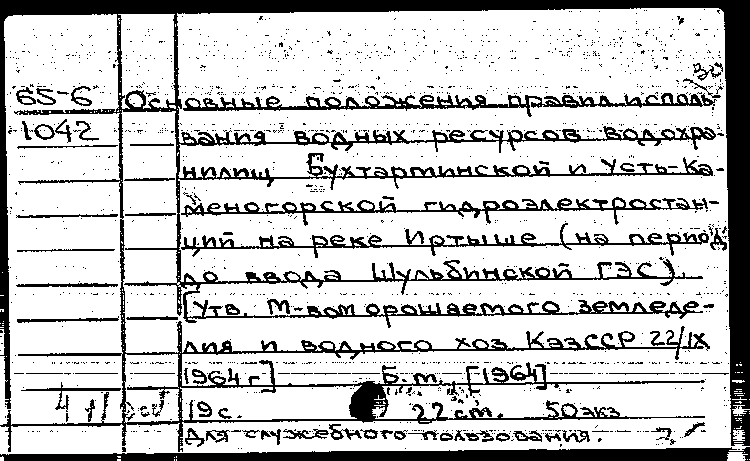 65-6 Основные положения правил исполь-
1042 вания водных ресурсов водохра-
нилищ Бухтарминской и Усть-Ка-
меногорской гидроэлектростан-
ций на реке Иртыше (на период
до ввода Шульбинской ГЭС).
[Утв. М-вом орошаемого земледе-
лия и водного хоз КазССР 22/IX
1964 г] Б.м., [1964].
19 с. 22 см. 50 экз
Для служебного пользования.